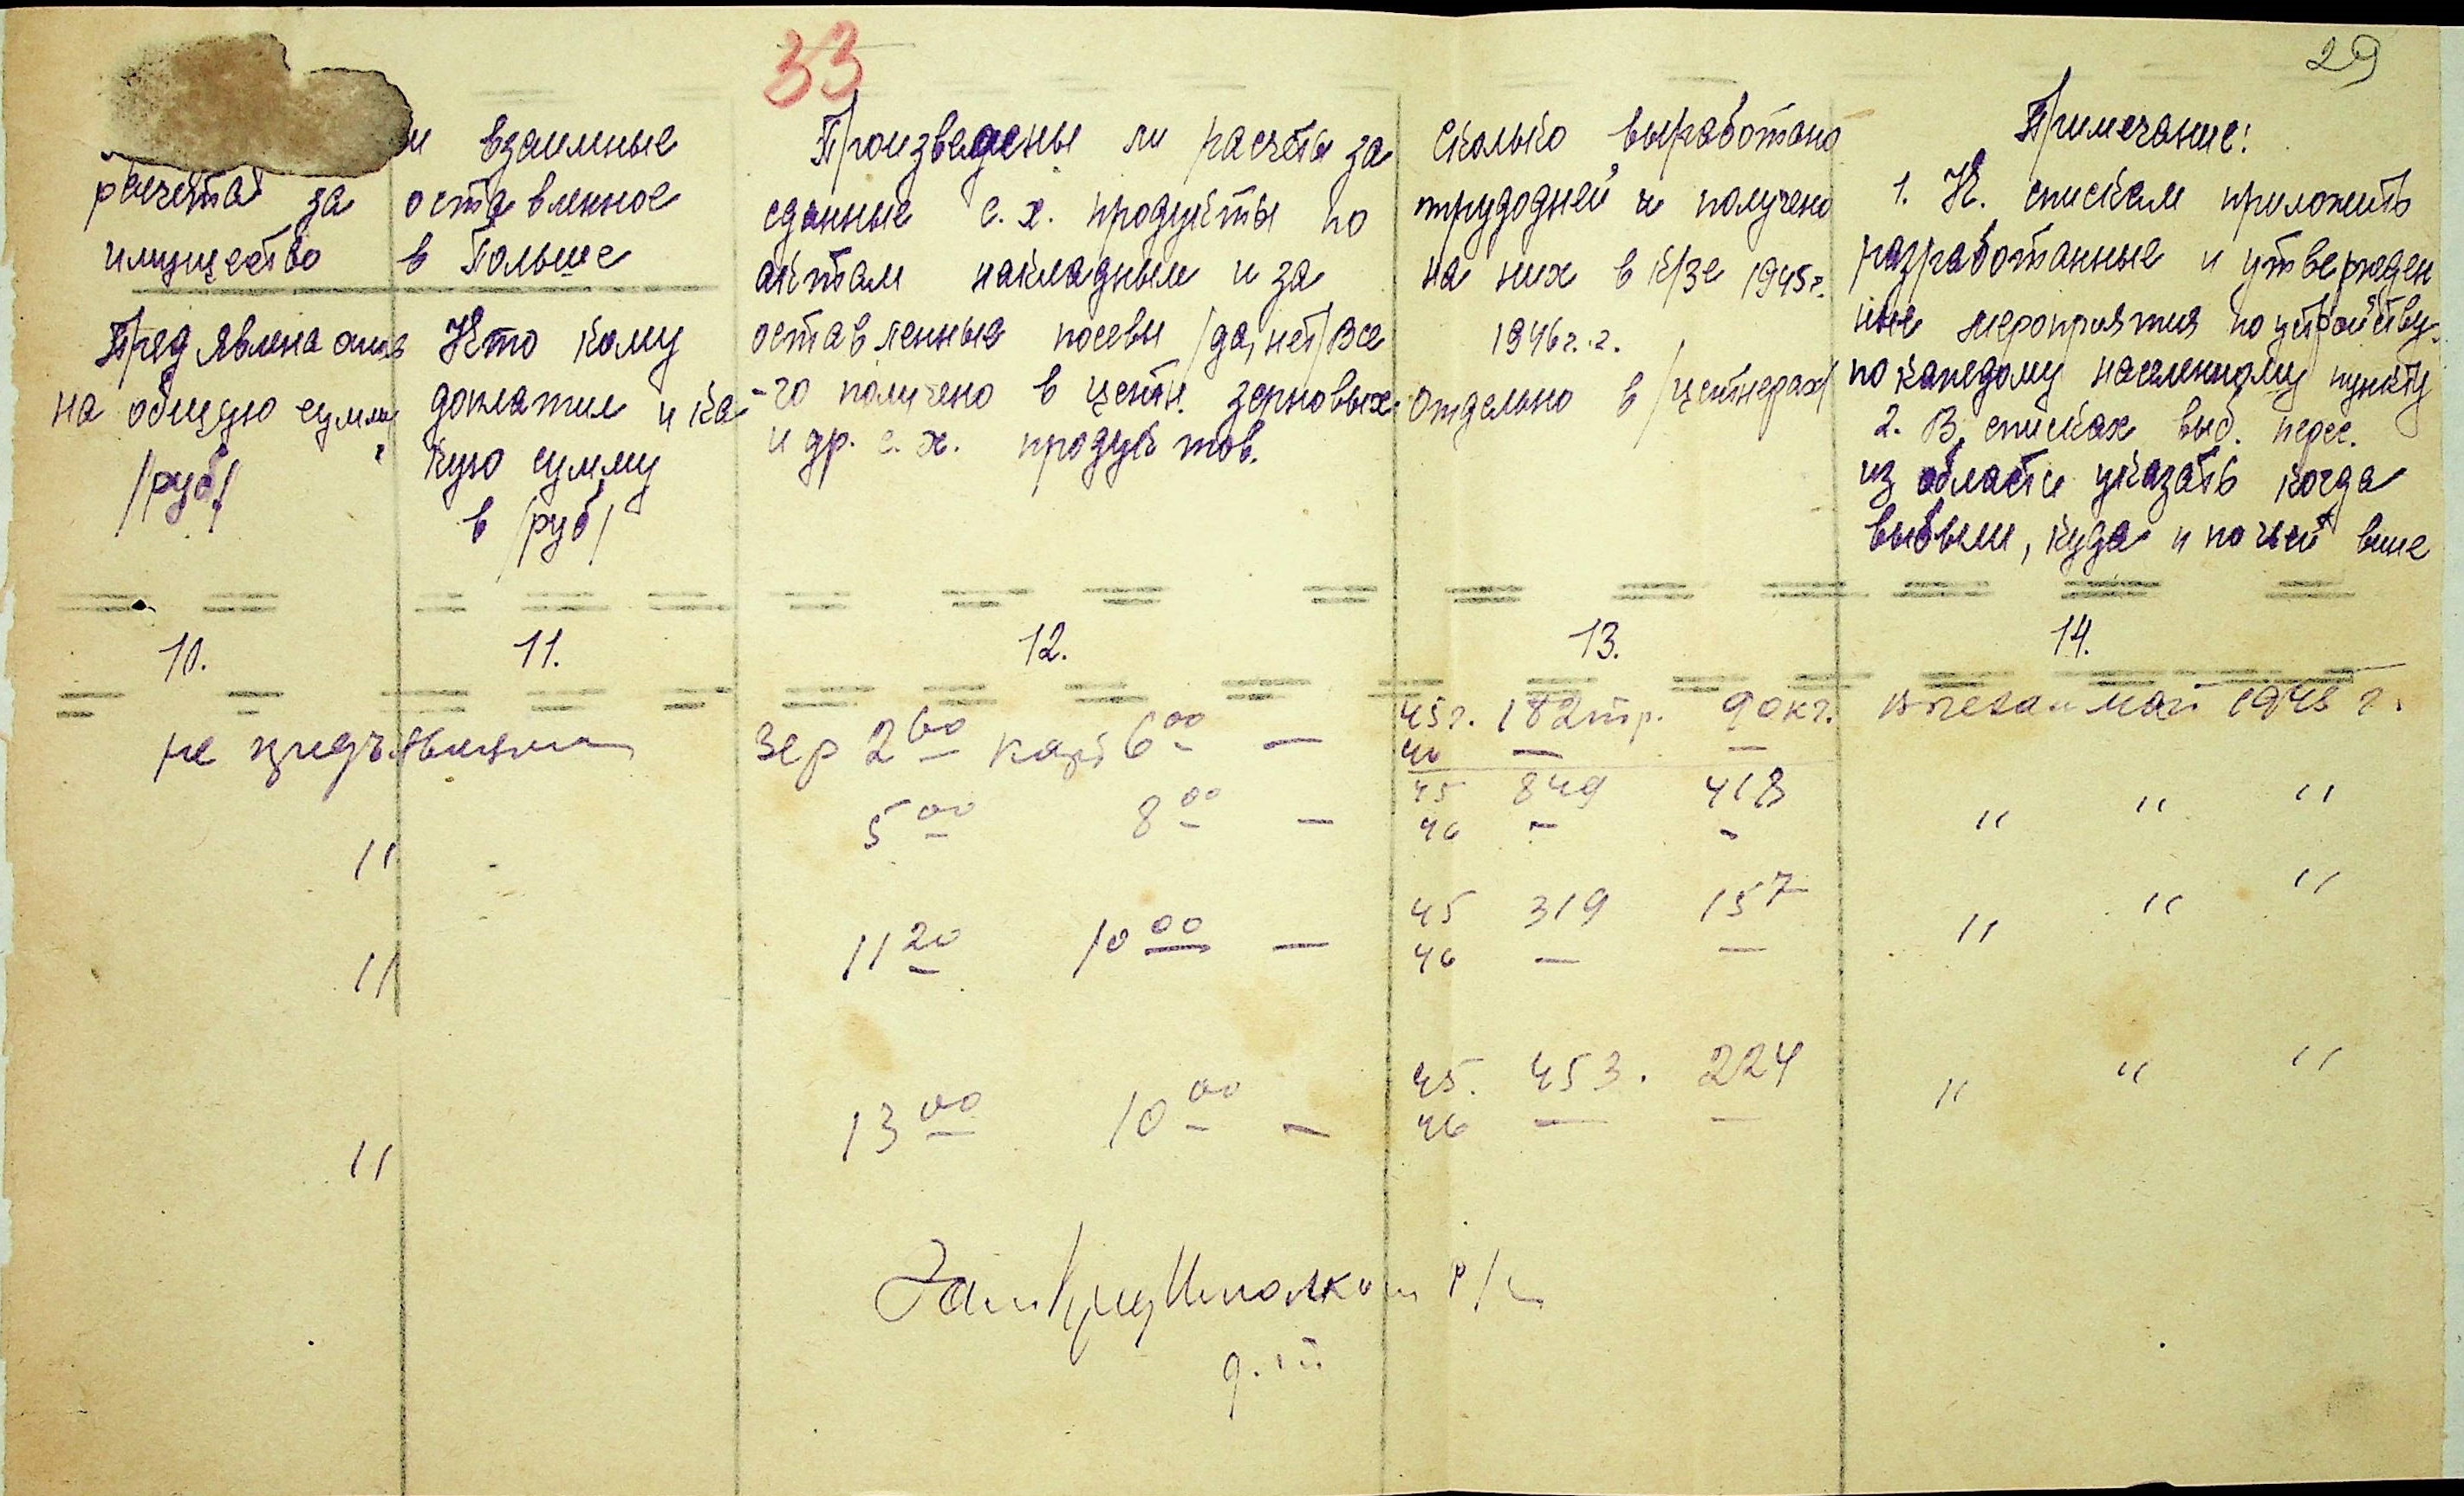 33
29
и взаимные
расчёта за оставленное
имущество в Польше
Пред явлена опись
на общую сумму
/руб/
Кто кому
доплатил и ка
кую сумму
в /руб/
Произведены ли расчёты за
сданные с. х. продукты по
актам накладным и за
оставленные посевы /да, нет/ Все
-го получено в центн. зерновых
и др. с. х. продуктов.
Сколько выработано
трудодней и получено
на них в к/зе 1945г.
1946г.г.
отдельно в /центнерах/
Примечание:
1. К. спискам приложить
разработанные и утвержден
ные мероприятия по устройству
по каждому населенному пункту
2. В списках выб. перес.
из области указать когда
выбыли, куда и по чьей вине
10. 11. 12. 13. 14.
не предъявлена зер 2 60 карт 6 00 — 45г. 182тр. 90кг. май 1945 г.
46 — —
" 5 00 8 00 — 45 849 418 " " "
46 — —
" 11 20 10 00 — 45 319 157 " " "
46 — —
" 13 00 10 00 — 45. 453. 224 " " "
46 — —
Зам Пред